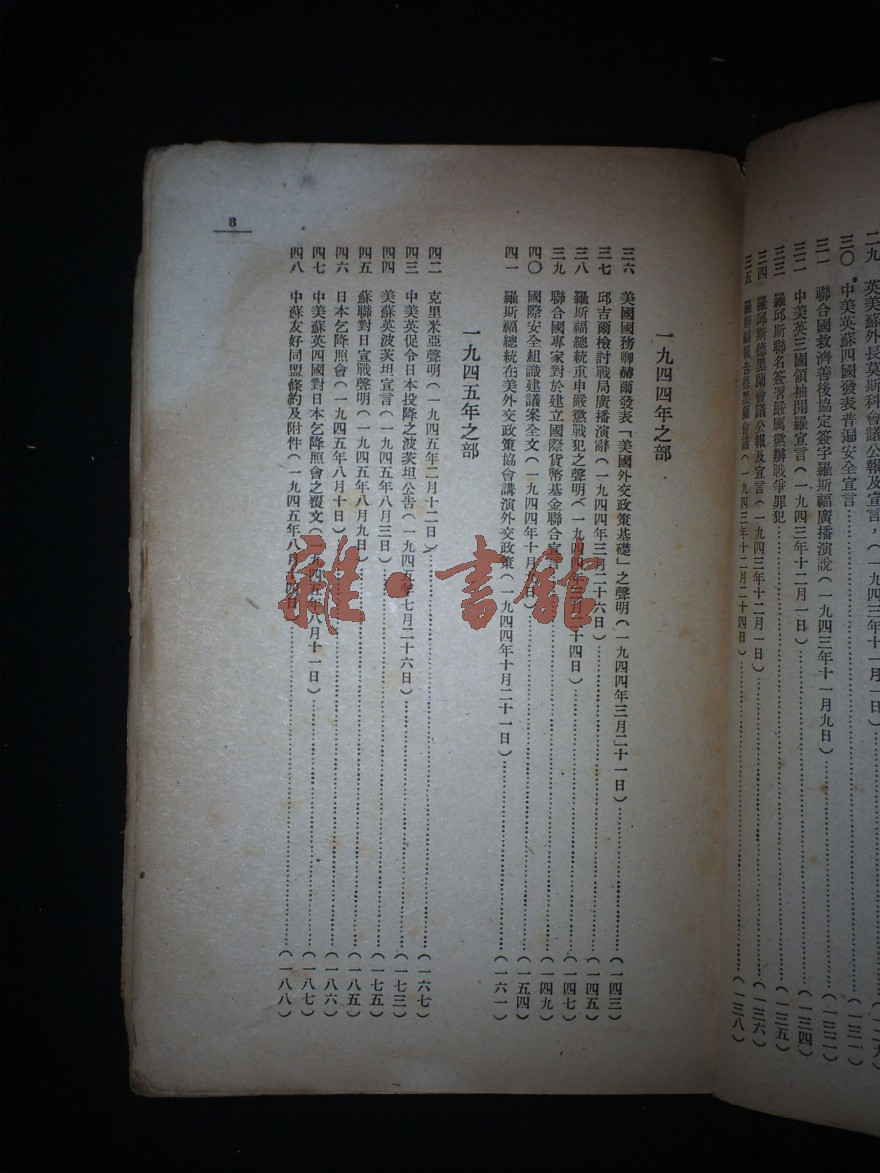 二九　英美蘇外長莫斯科會議公報及宣言，（一九四三年十一月一日）
三〇　中美英蘇四國發表普遍安全宣言
三一　聯合國救濟善後協定簽字羅斯福廣播演說（一九四三年十一月九日）（一三二）
三二　中美英三國領袖開羅宣言（一九四三年十二月一日）（一三四）
三三　羅邱斯聯名簽署嚴厲徵辦戰爭罪犯（一三五）
三四　羅邱斯德墨蘭會議公報及宣言（一九四三年十二月一日）（一三六）
三五　羅斯福報告德墨蘭會議（一九四三年十二月二十四日）（一三八）
8
一九四四年之部
三六　美國國務卿赫爾發表「美國外交政策基礎」之聲明（一九四四年三月二十一日）（一四三）
三七　邱吉爾檢討戰局廣播演辭（一九四四年三月二十六日）（一四五）
三八　羅斯福總統重申嚴懲戰犯之聲明（一九四四年三月二十四日）（一四七）
三九　聯合國專家對於建立國際貨幣基金聯合宣言（一四九）
四〇　國際安全組識建議案全文（一九四四年十月　日）（一五四）
四一　羅斯福總統在美外交政策協會講演外交政策（一九四四年十月二十一日）（一六一）
一九四五年之部
四二　克里米亞聲明（一九四五年二月十二日）（一六七）
四三　中美英促令日本投降之波茨坦公告（一九四五年七月二十六日）（一七三）
四四　美蘇英波茨坦宣言（一九四五年八月三日）（一七五）
四五　蘇聯對日宣戰聲明（一九四五年八月九日）（一八五）
四六　日本乞降照會（一九四五年八月十日）（一八六）
四七　中美蘇英四國對日本乞降照會之覆文（一九四五年八月十一日）（一八七）
四八　中蘇友好同盟條約及附件（一九四五年八月十四日）（一八八）
雜·書舘